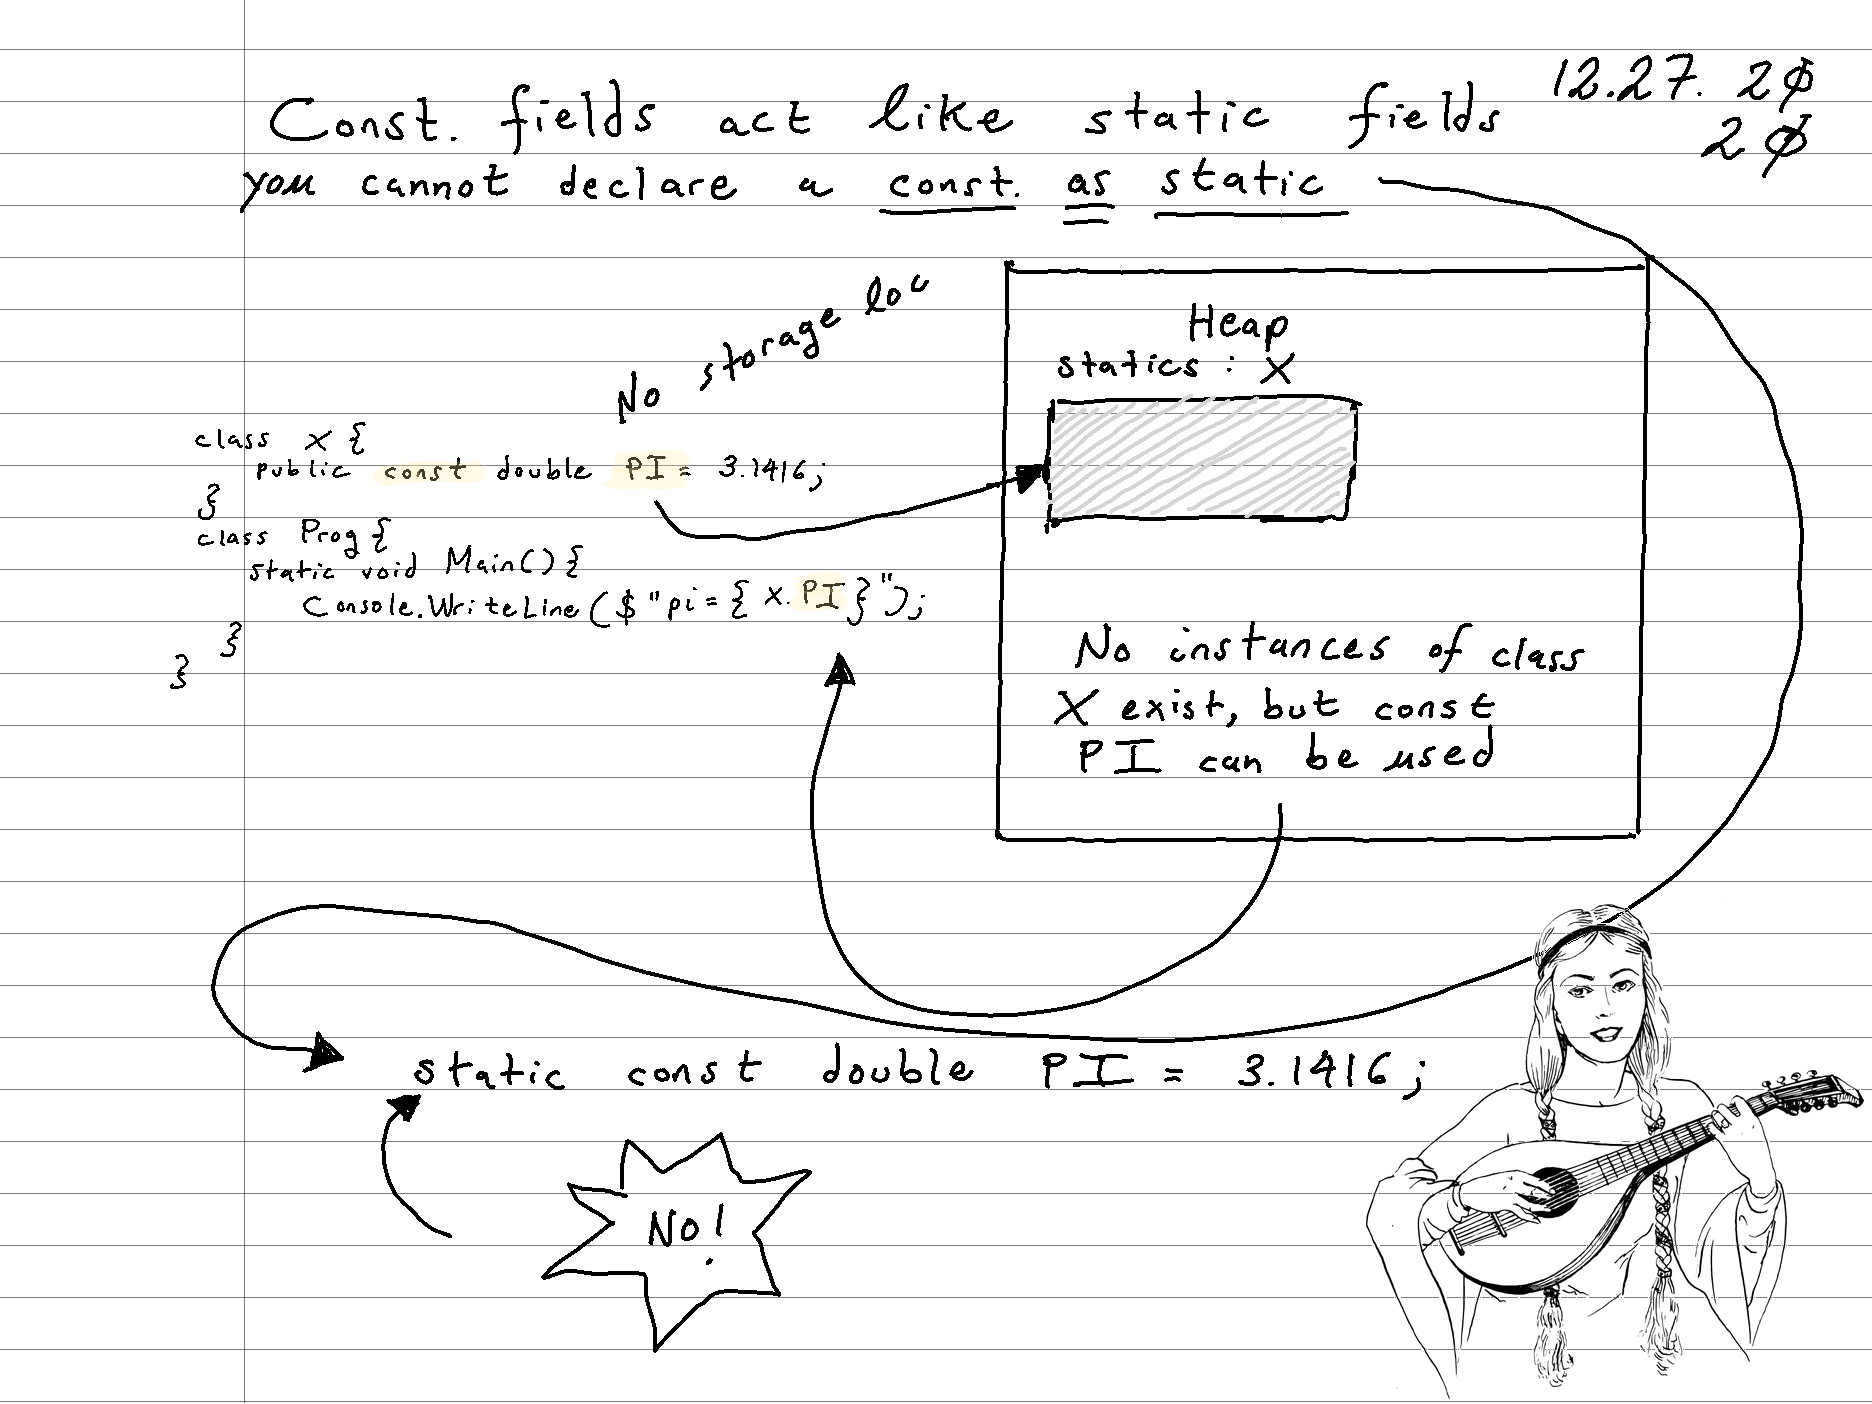 12.27. 20
20
Const. fields act like static fields
you cannot declare a const. as static
No storage loc
class X {
public const double PI = 3.1416;
}
class Prog {
static void Main() {
Console.WriteLine($"pi = { X.PI }");
}
}
Heap
statics : X
No instances of class
X exist, but const
PI can be used
static const double PI = 3.1416;
No!